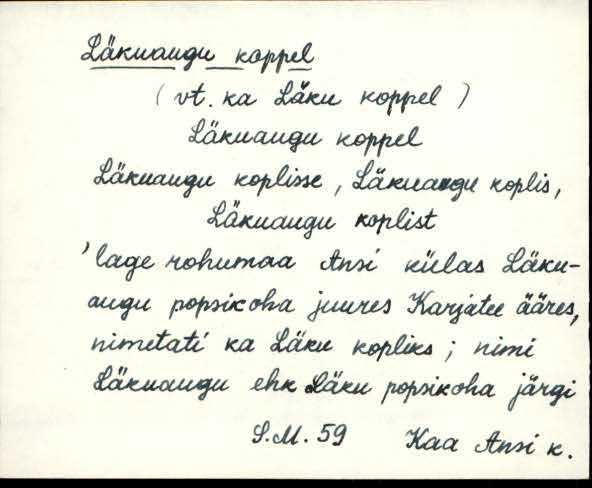 Läkuaugu koppel
( vt. ka Läku koppel )
Läkuaugu koppel
Läkuaugu koplisse, Läkuaugu koplis,
Läkuaugu koplist
'lage rohumaa Ansi külas Läku-
augu popsikoha juures Karjatee ääres,
nimetati ka Läku kopliks; nimi
Läkuaugu ehk Läku popsikoha järgi
S.M. 59 Kaa Ansi k.